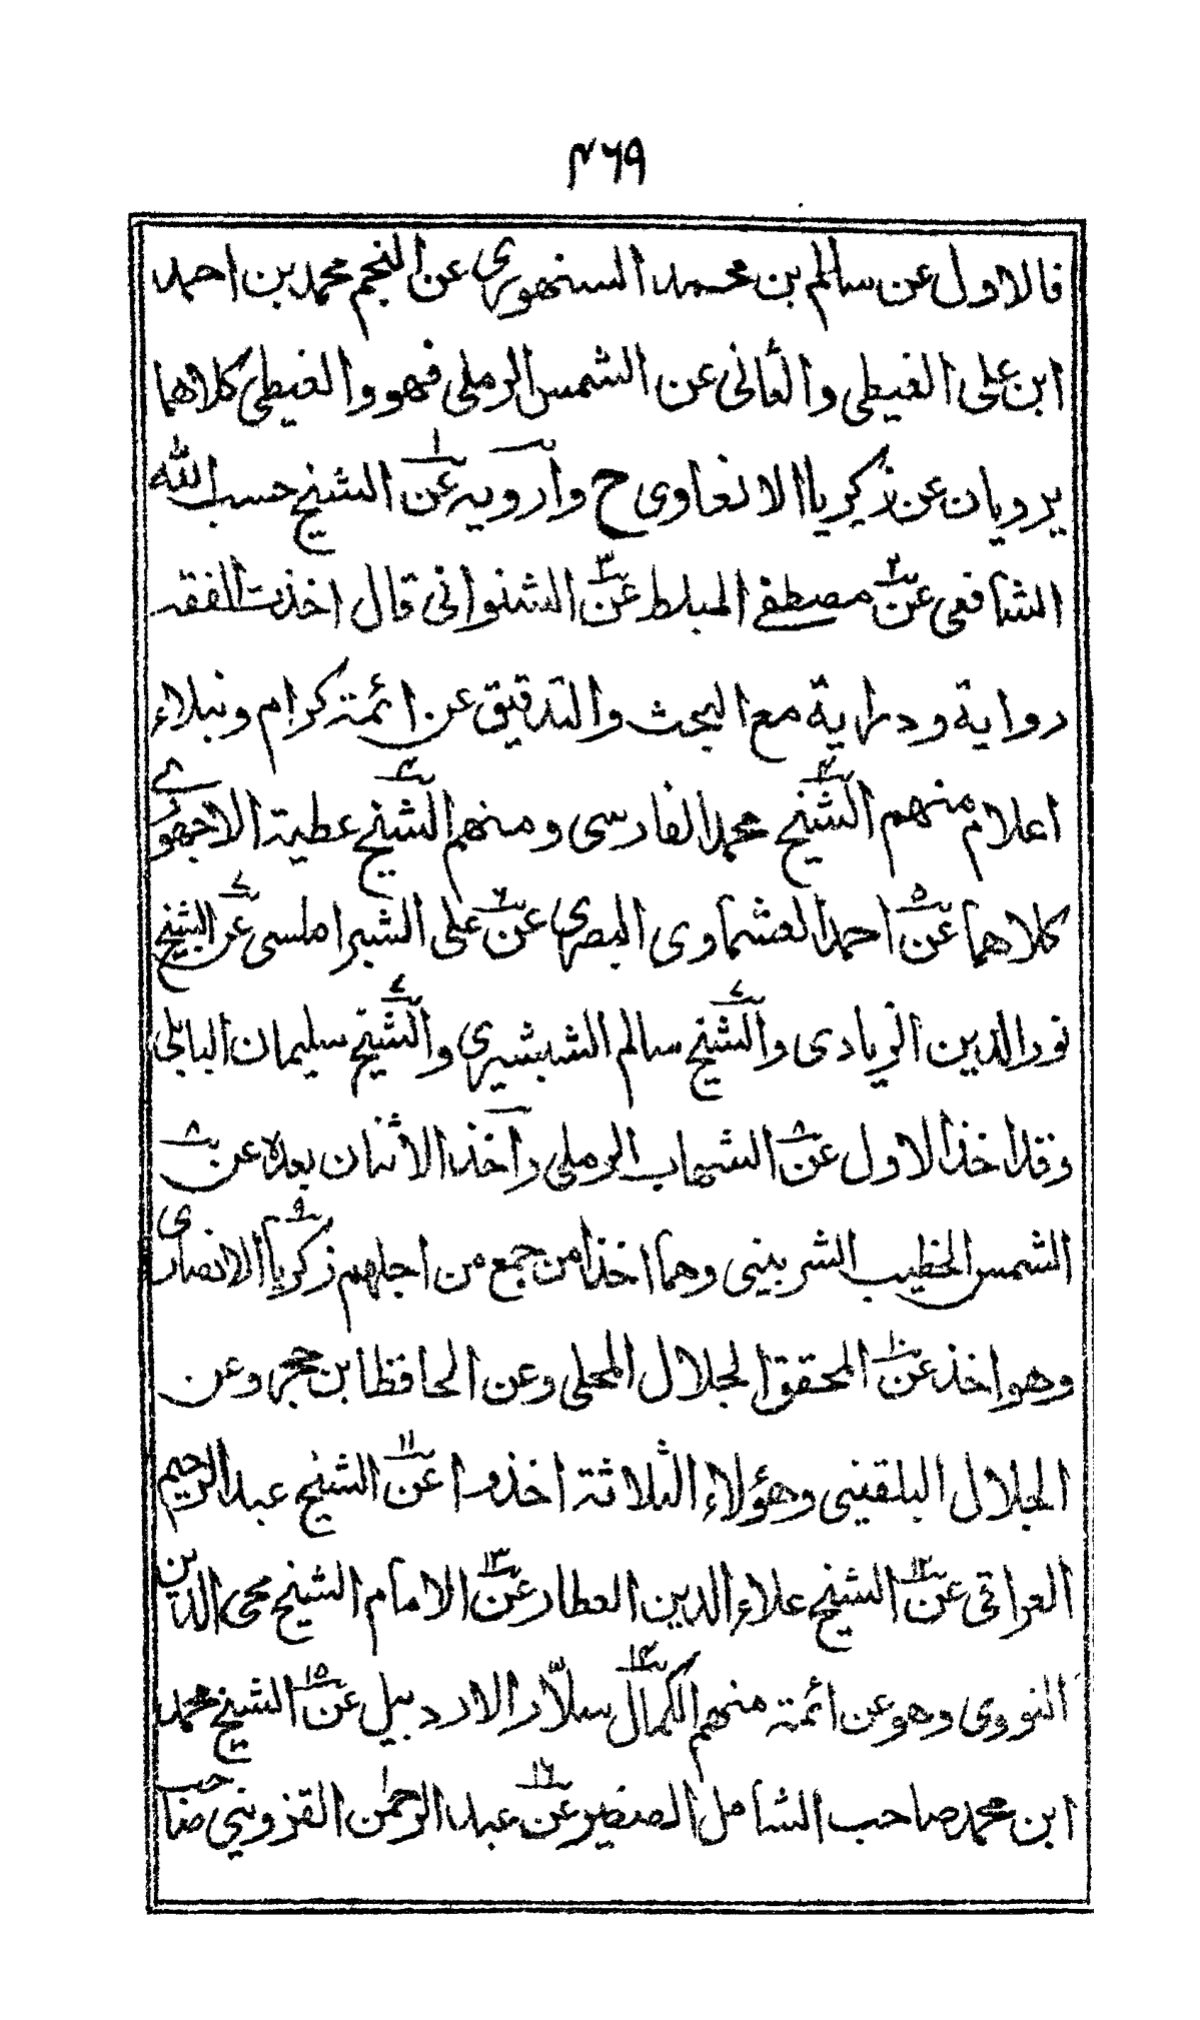 ۴۶۹
فالاول عن سالم بن محمد السنهوري عن النجم محمد بن احمد
ابن على الغيطى والثانى عن الشمس الرملى فهو والغيطى كلاهما
يرويان عن زكريا الانصاوى ح وارويه عن ١ الشيخ حسب الله
الشافعى عن ٢ مصطفے المبلط عن ٣ الشنوانى قال اخذت الفقه
رواية ودراية مع البحث والتدقيق عن ائمة كرام ونبلاء
اعلام منهم الشيخ ۴ محمد الفارسى ومنهم الشيخ ۴ عطية الاجهوري
كلاهما عن ۵ احمد العشماوى المصرى عن ۶ على الشبراملسى عن ٧ الشيخ
نور الدين الزيادى والشيخ ٧ سالم الشبشيرى والشيخ ٧ سليمان البابلى
وقد اخذ الاول عن ٨ الشهاب الرملى واخذ الاثنان بعده عن ٨
الشمس الخطيب الشربينى وهما اخذا من جمع من اجلهم زكريا ٩ الانصارى
وهو اخذ عن ١٠ المحقق الجلال المحلى وعن الحافظ ابن حجر وعن
الجلال البلقينى وهؤلاء الثلاثة اخذوا عن ١١ الشيخ عبد الرحيم
العراقى عن ١٢ الشيخ علاء الدين العطار عن ١٣ الامام الشيخ محى الدين
النووى وهو عن ائمة منهم الكمال ١۴ سلّار الاردبيل عن ١۵ الشيخ محمد
ابن محمد صاحب الشامل الصغير عن ١۶ عبد الرحمن القزوينى صاحب